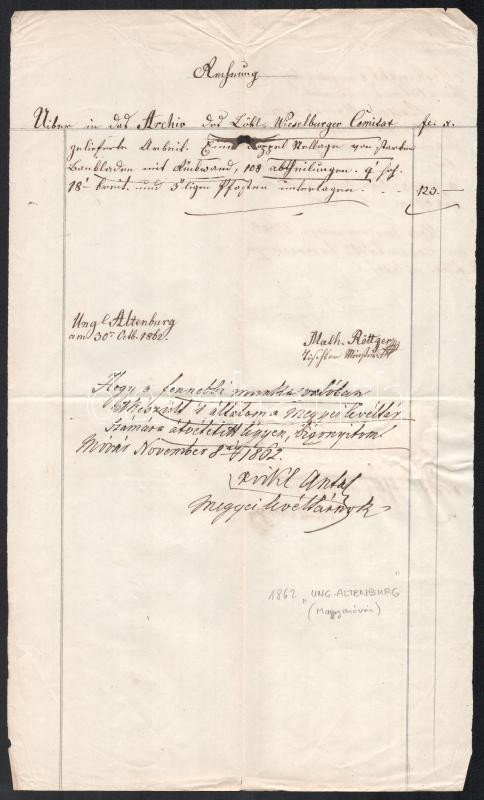 Rechnung
Uiber in das Archiv des Löbl. Wieselburger Comitat fei x.
gelieferte Arbeit. Eine Doppel Stellage von starken
mit Rückwand, 108 abtheilungen. 9' hoch
18' breit. und 3"ligen Pfosten unterlagen . . . 125.—
Ung. Altenburg
am 30ten Octb. 1862.
Math. Röttger
Tischler Meister
Hogy a fennebbi munka valóban
elkészült s általam a megyei levéltár
számára átvétetett légyen, bizonyitom
Móvár November 8án 1862.
Antal
megyei levéltárnok
1862 „UNG. ALTENBURG"
(Magyaróvár)